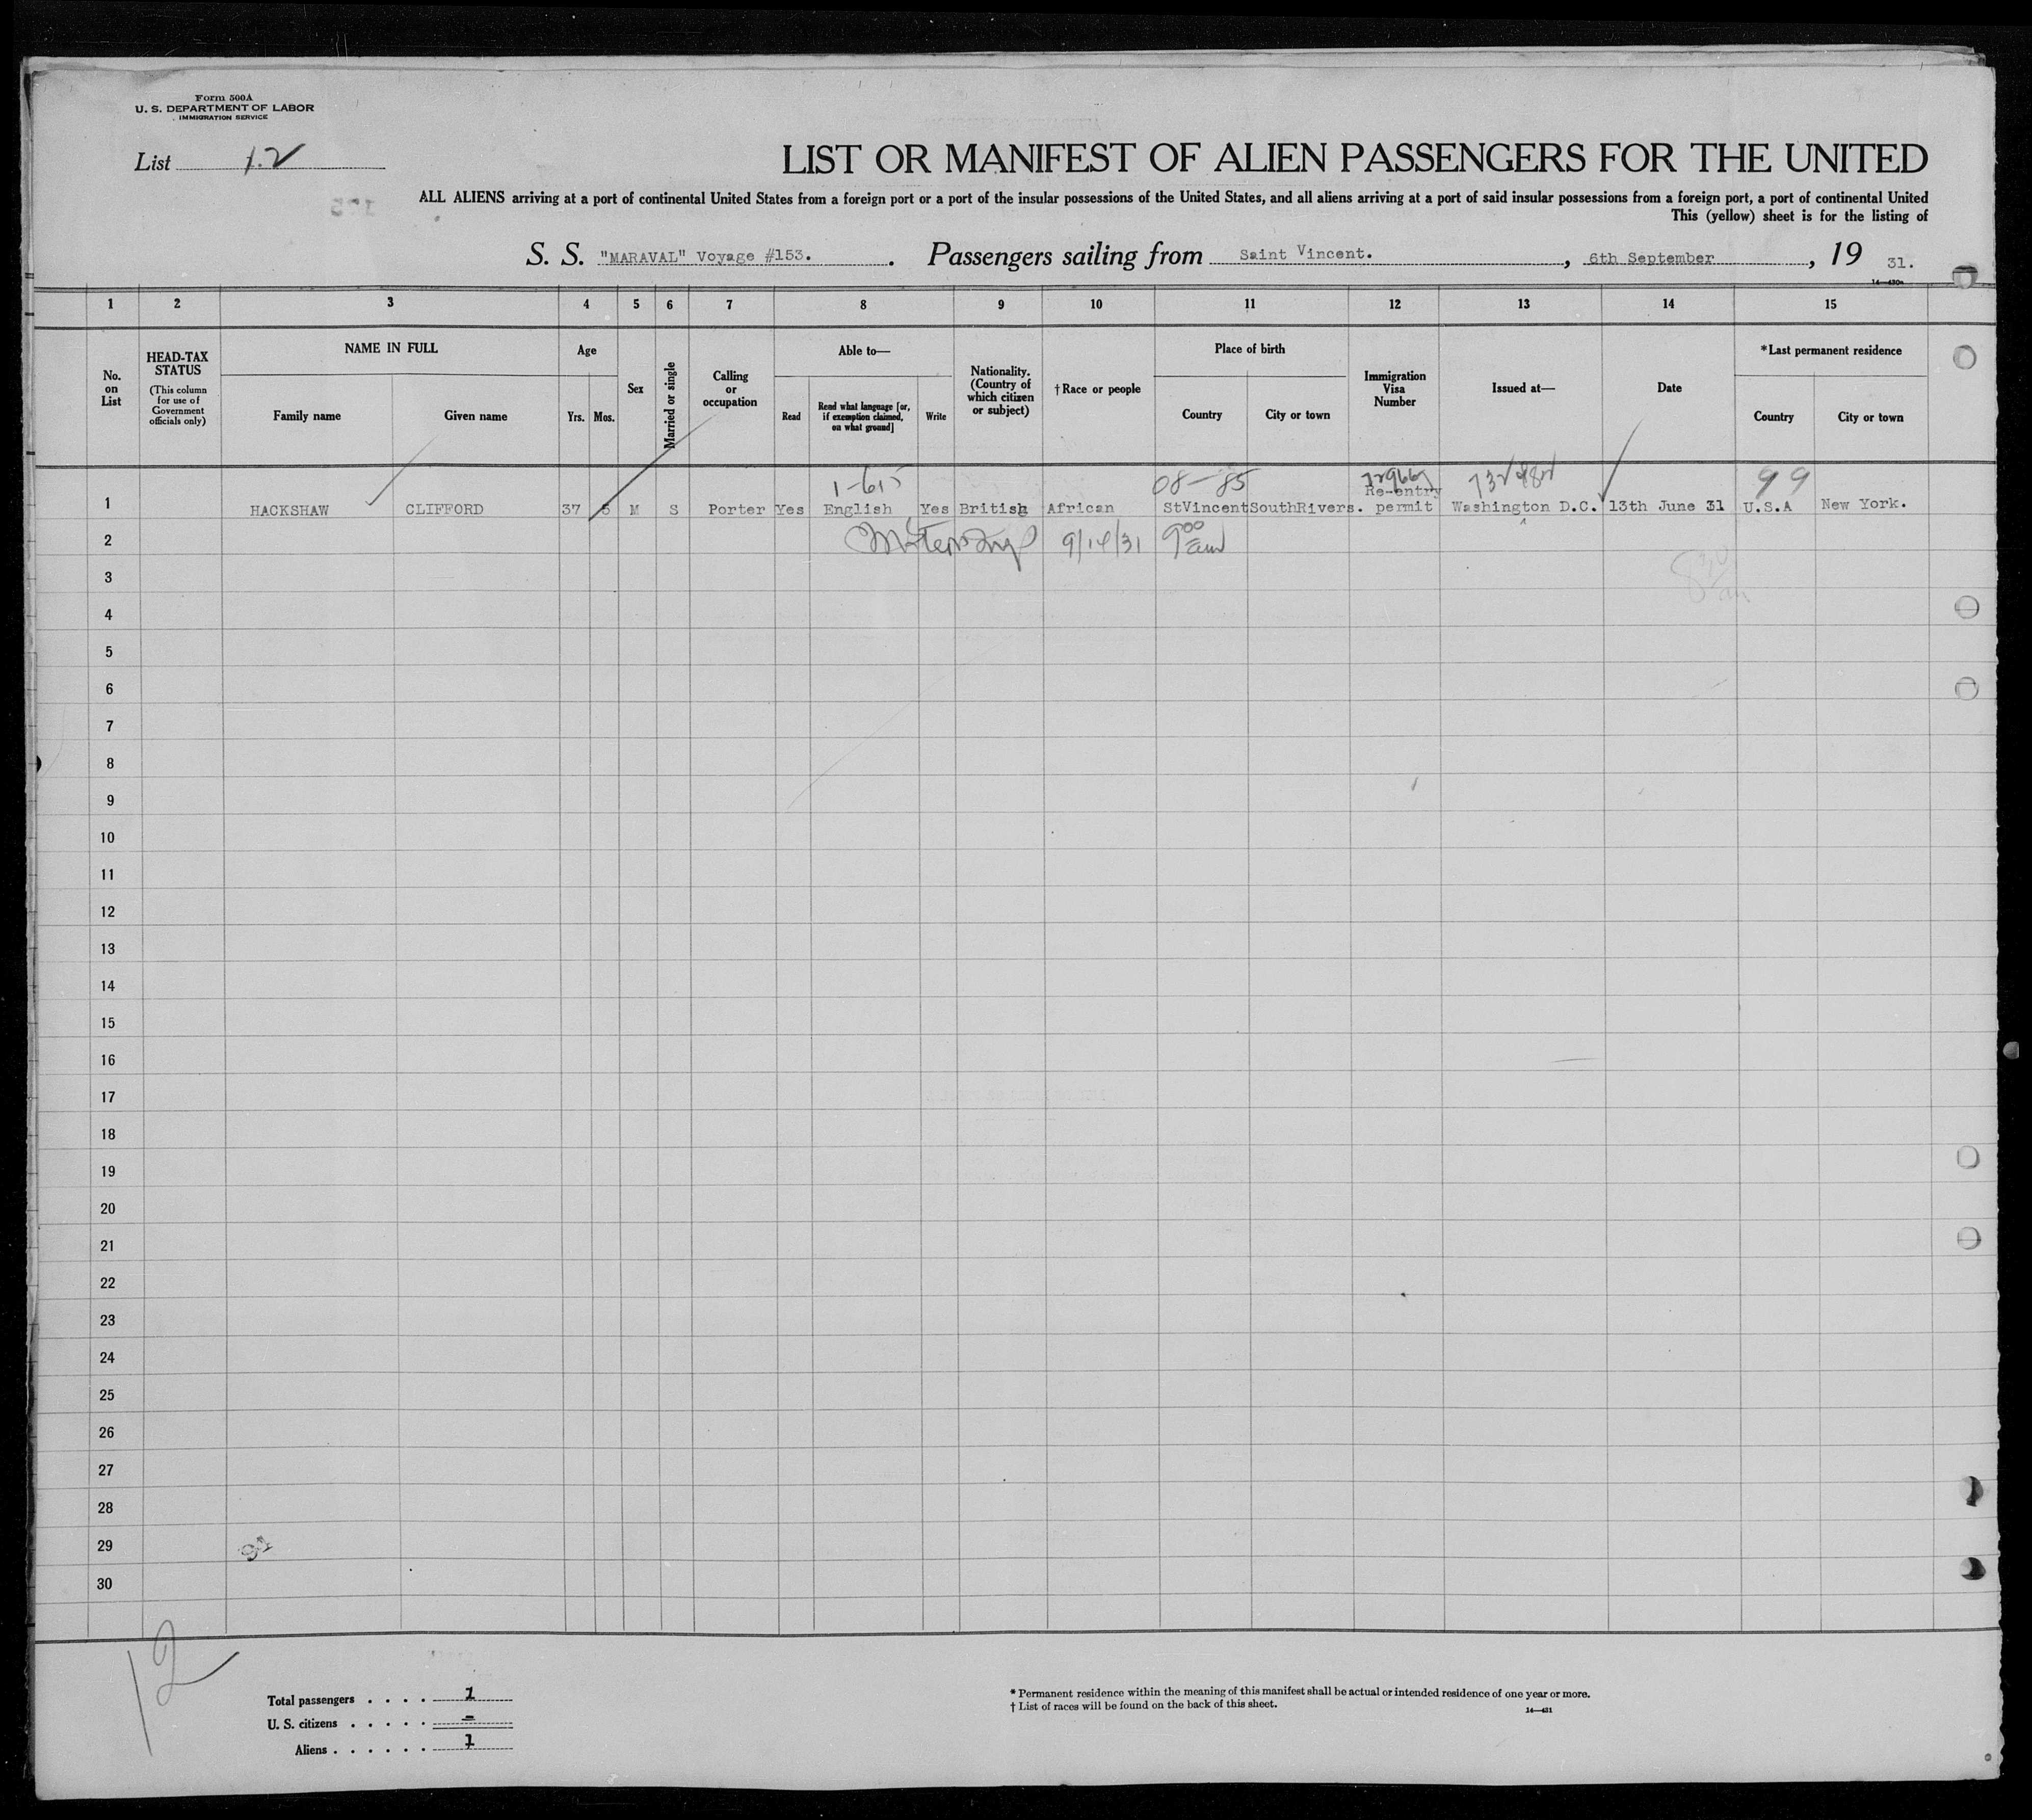 Form 500A
U. S. DEPARTMENT OF LABOR
IMMIGRATION SERVICE
List 12
LIST OR MANIFEST OF ALIEN PASSENGERS FOR THE UNITED
ALL ALIENS arriving at a port of continental United States from a foreign port or a port of the insular possessions of the United States, and all aliens arriving at a port of said insular possessions from a foreign port, a port of continental United
This (yellow) sheet is for the listing of
S. S. "MARAVAL" Voyage #153. Passengers sailing from Saint Vincent. , 6th September , 19 31.
1 2 3 4 5 6 7 8 9 10 11 12 13 14 15
No. on List
HEAD-TAX STATUS
(This column for use of Government officials only)
NAME IN FULL
Family name Given name
Age
Yrs. Mos.
Sex
Married or single
Calling or occupation
Able to—
Read
Read what language [or, if exemption claimed, on what ground]
Write
Nationality. (Country of which citizen or subject)
†Race or people
Place of birth
Country City or town
Immigration Visa Number
Issued at—
Date
*Last permanent residence
Country City or town
1-615 08-85 99
1 HACKSHAW CLIFFORD 37 5 M S Porter Yes English Yes British African StVincent SouthRivers. Re-entry permit Washington D.C. 13th June 31 U.S.A New York.
2 9/14/31 9 00 am
3
4
5
6
7
8
9
10
11
12
13
14
15
16
17
18
19
20
21
22
23
24
25
26
27
28
29
30
12
Total passengers . . . . 1
U. S. citizens . . . . . -
Aliens . . . . . . 1
* Permanent residence within the meaning of this manifest shall be actual or intended residence of one year or more.
† List of races will be found on the back of this sheet.
14—431